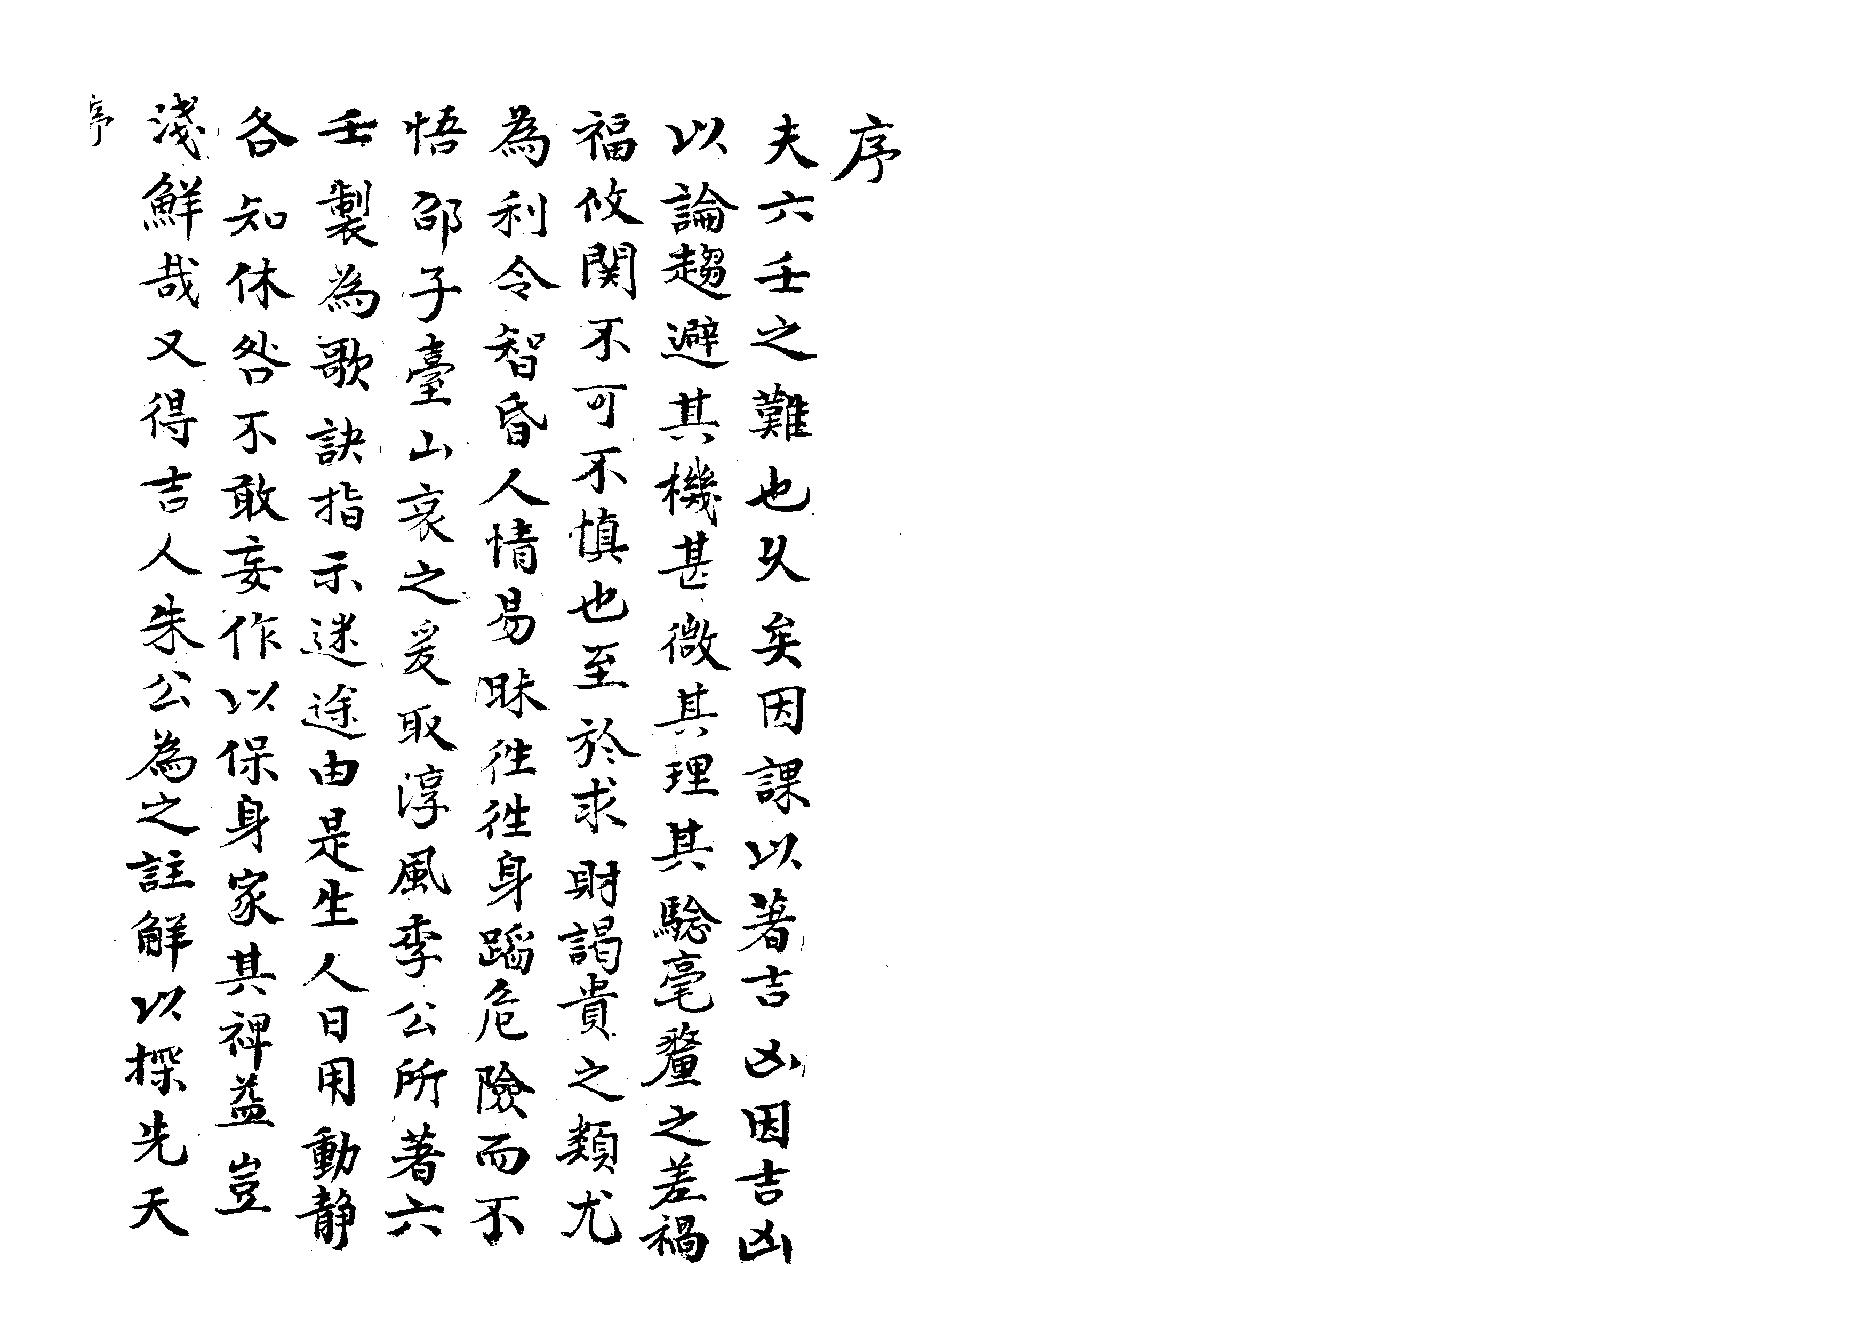 序
夫六壬之難也久矣因課以著吉凶因吉凶
以論趨避其機甚微其理其騐毫釐之差禍
福攸関不可不慎也至於求財謁貴之類尤
為利令智昏人情易昧徃徃身蹈危險而不
悟邵子臺山哀之爰取淳風李公所著六
壬製為歌訣指示迷途由是生人日用動静
各知休咎不敢妄作以保身家其裨益豈
淺鮮哉又得吉人朱公為之註解以探先天
序